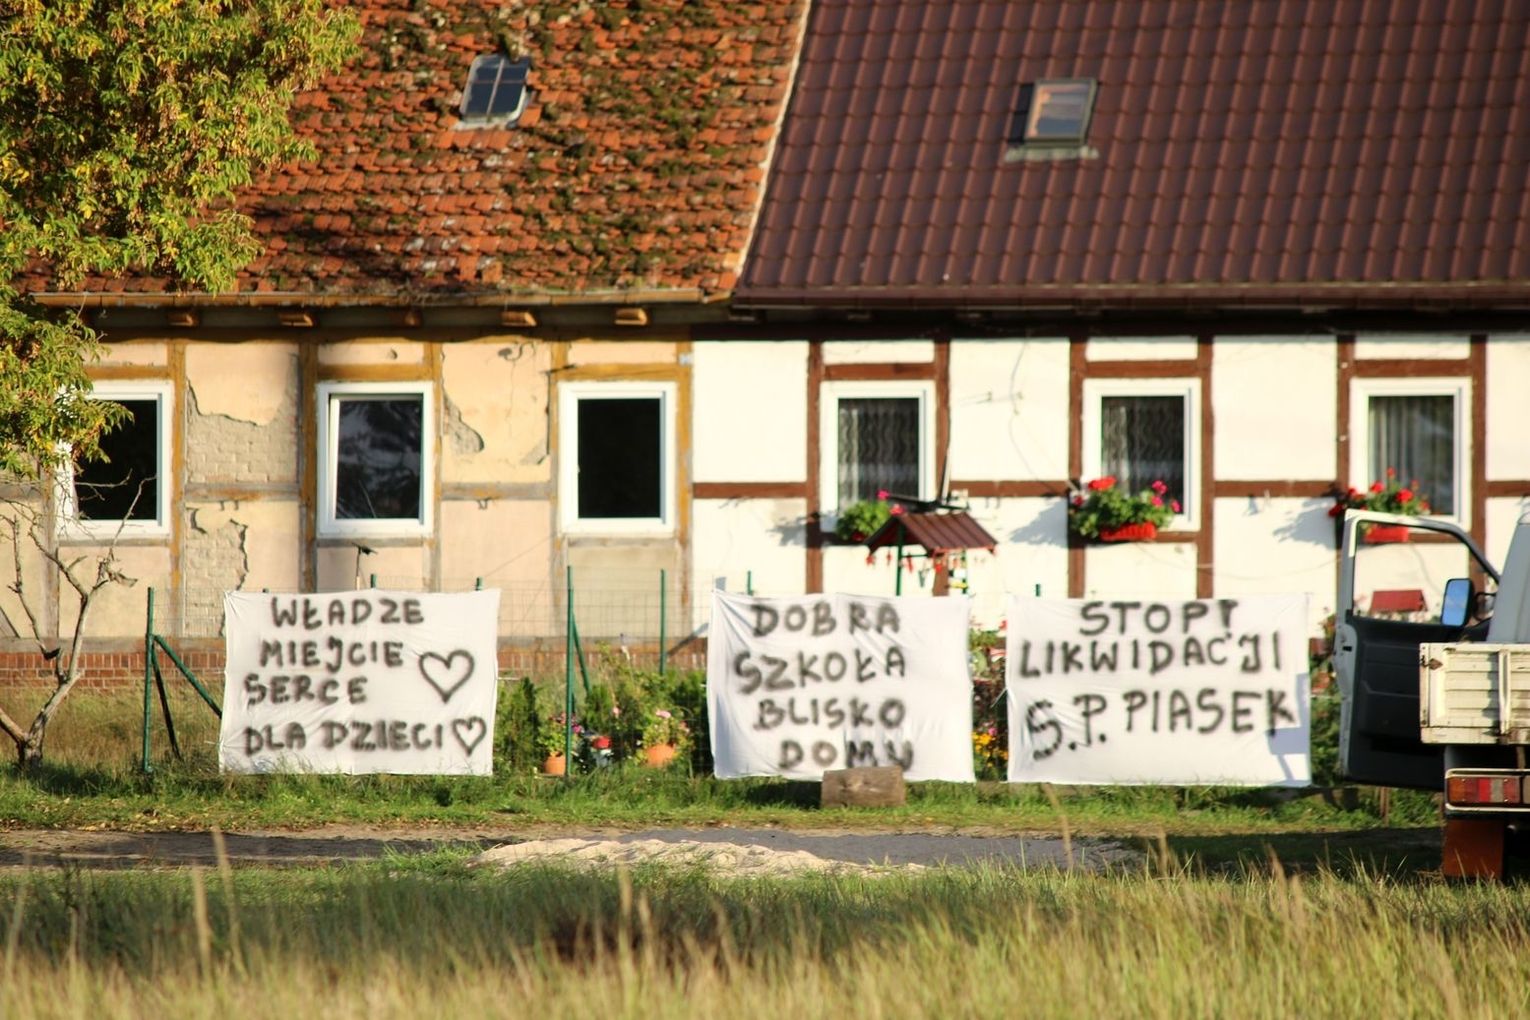 WŁADZE
MIEJCIE
SERCE
DLA DZIECI
DOBRA
SZKOŁA
BLISKO
DOMU
STOP!
LIKWIDACJI
S.P. PIASEK